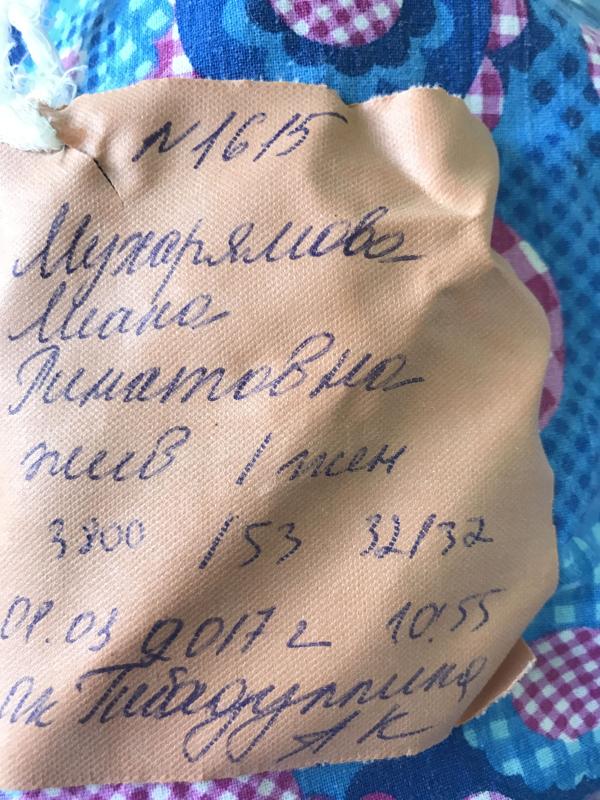 N1615
Мухарямова
Лиана
Ринатовна
жив / жен
3300 / 53 32/32
01.03 2017 г 10:55
ак Гибадуллина
АК